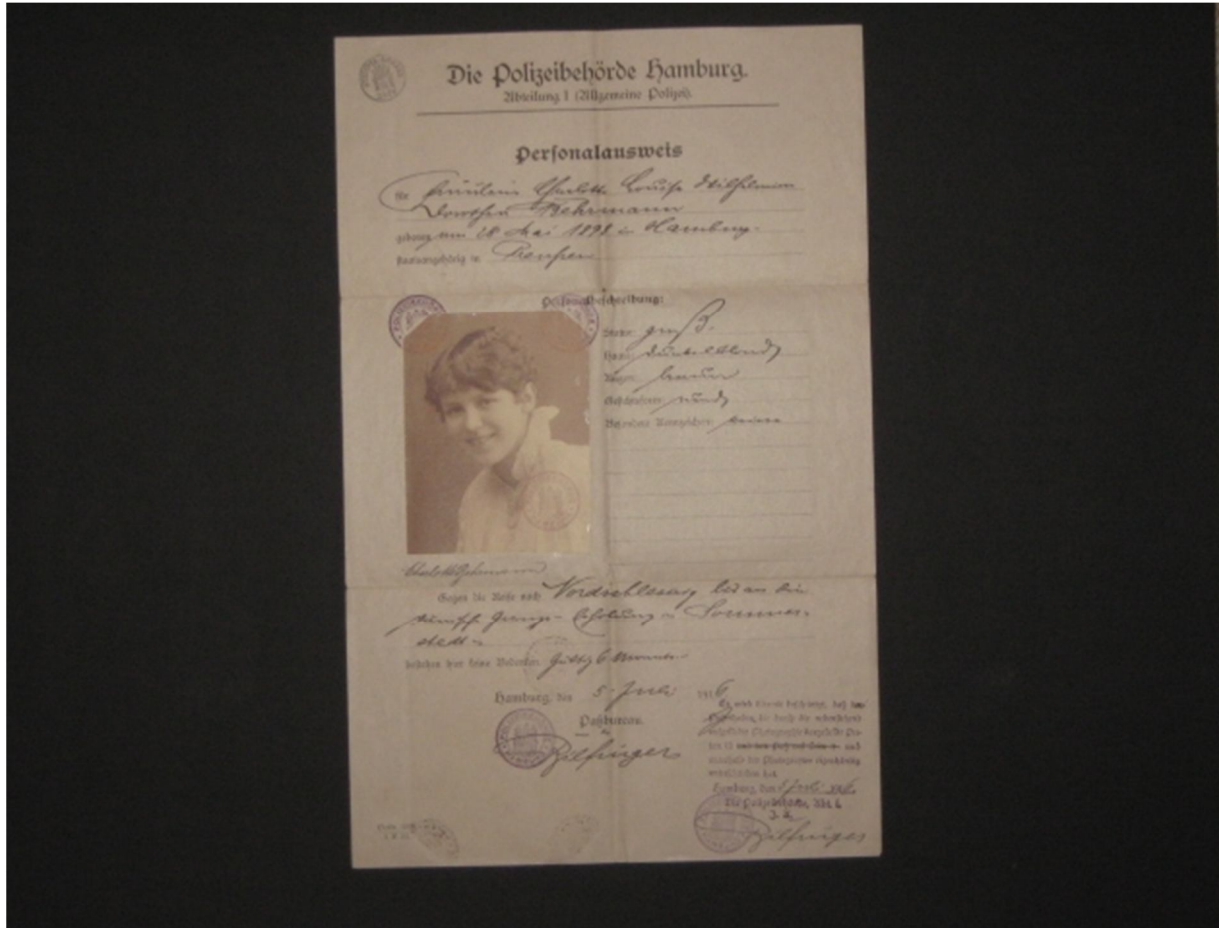 Die Polizeibehörde Hamburg.
Abteilung I (Allgemeine Polizei).
Personalausweis
für Fräulein Charlotte Louise Wilhelmine
Dorothea Behrmann
geboren am 28 Mai 1898 in Hamburg.
staatsangehörig in Preußen
Personalbeschreibung:
groß.
Haar: dunkelblond
Augen: braun
Gesichtsform: rund
Besondere Kennzeichen: keine
Charlotte Behrmann
Gegen die Reise nach Nordschleswig bis an die
dänische Grenze - Erholung in Sommer-
stedt -
bestehen hier keine Bedenken. Gültig 6 Monate
Hamburg, den 5. Juli 1916
Paßbureau.
Bilfinger
Es wird hiermit bescheinigt, daß
Hamburg, den 5 Juli 1916
Die Polizeibehörde, Abt. I
J. A.
Bilfinger